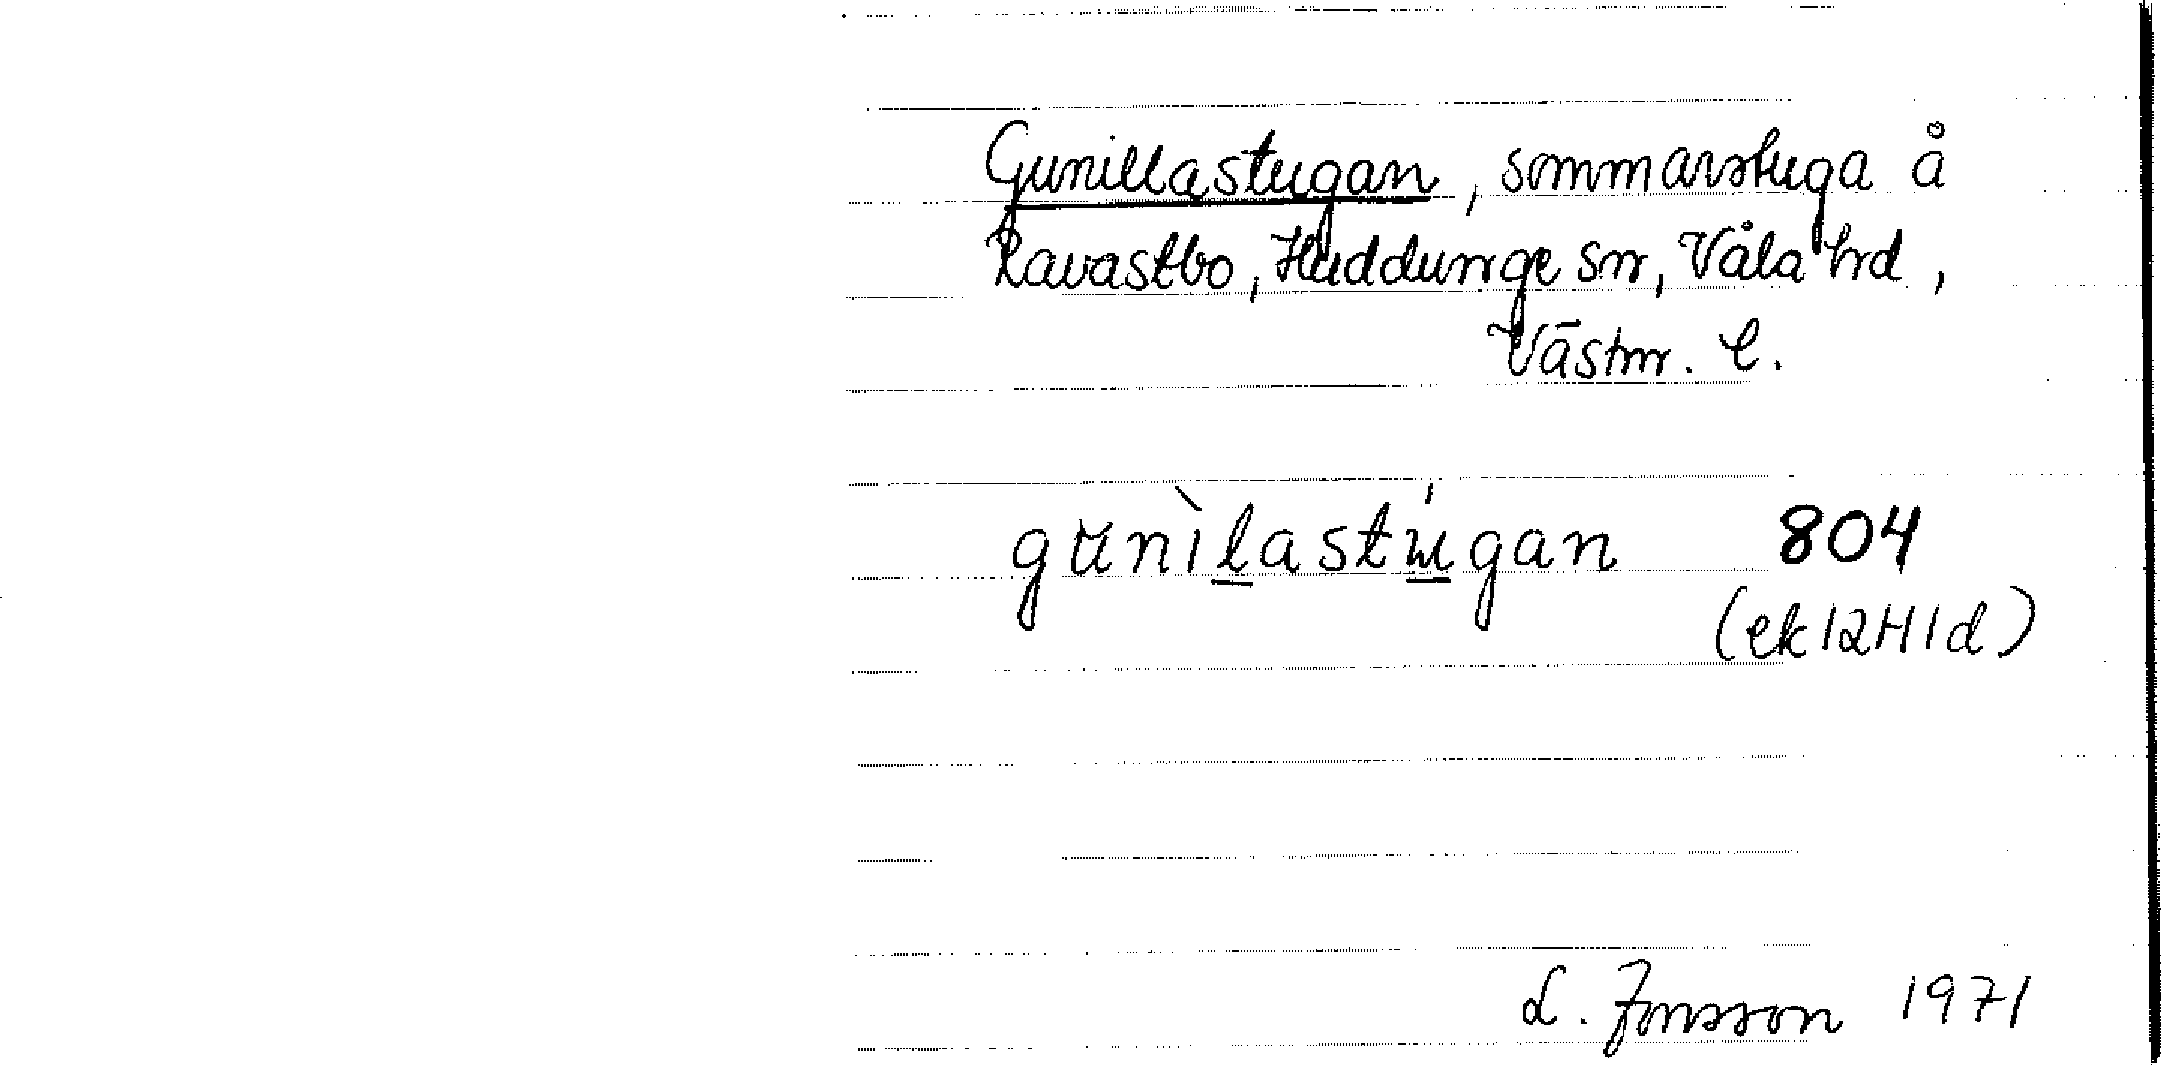 Gunillastugan, sommarstuga å
Ravastbo, Huddunge sn, Våla hd,
Västm. l.
gunìlastu̍gan 804
(ek 12H1d)
L. Jonsson 1971